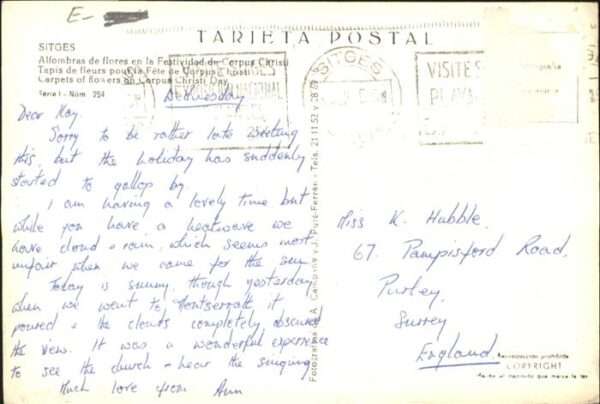 E-
TARJETA POSTAL
SITGES
Alfombras de flores en la Festividad de Corpus Christi
Tapis de fleurs pour la Fête de Corpus Christi
Carpets of flowers on Corpus Christi Day
Serie I - Núm. 254
SITGES
VISITE S
PLAYA
Wednesday
Dear Kay,
Sorry to be rather late writing
this, but the holiday has suddenly
started to gallop by.
I am having a lovely time but
while you have a heatwave we
have cloud + rain, which seems most
unfair when we came for the sun.
Today is sunny, though yesterday
when we went to Montserratt it
poured + the clouds completely obscured
the view. It was a wonderful experience
to see the church + hear the singing.
Much love from Ann
Miss K. Hubble,
67, Pampisford Road,
Purley,
Surrey
England
Reproducción prohibida
COPYRIGHT